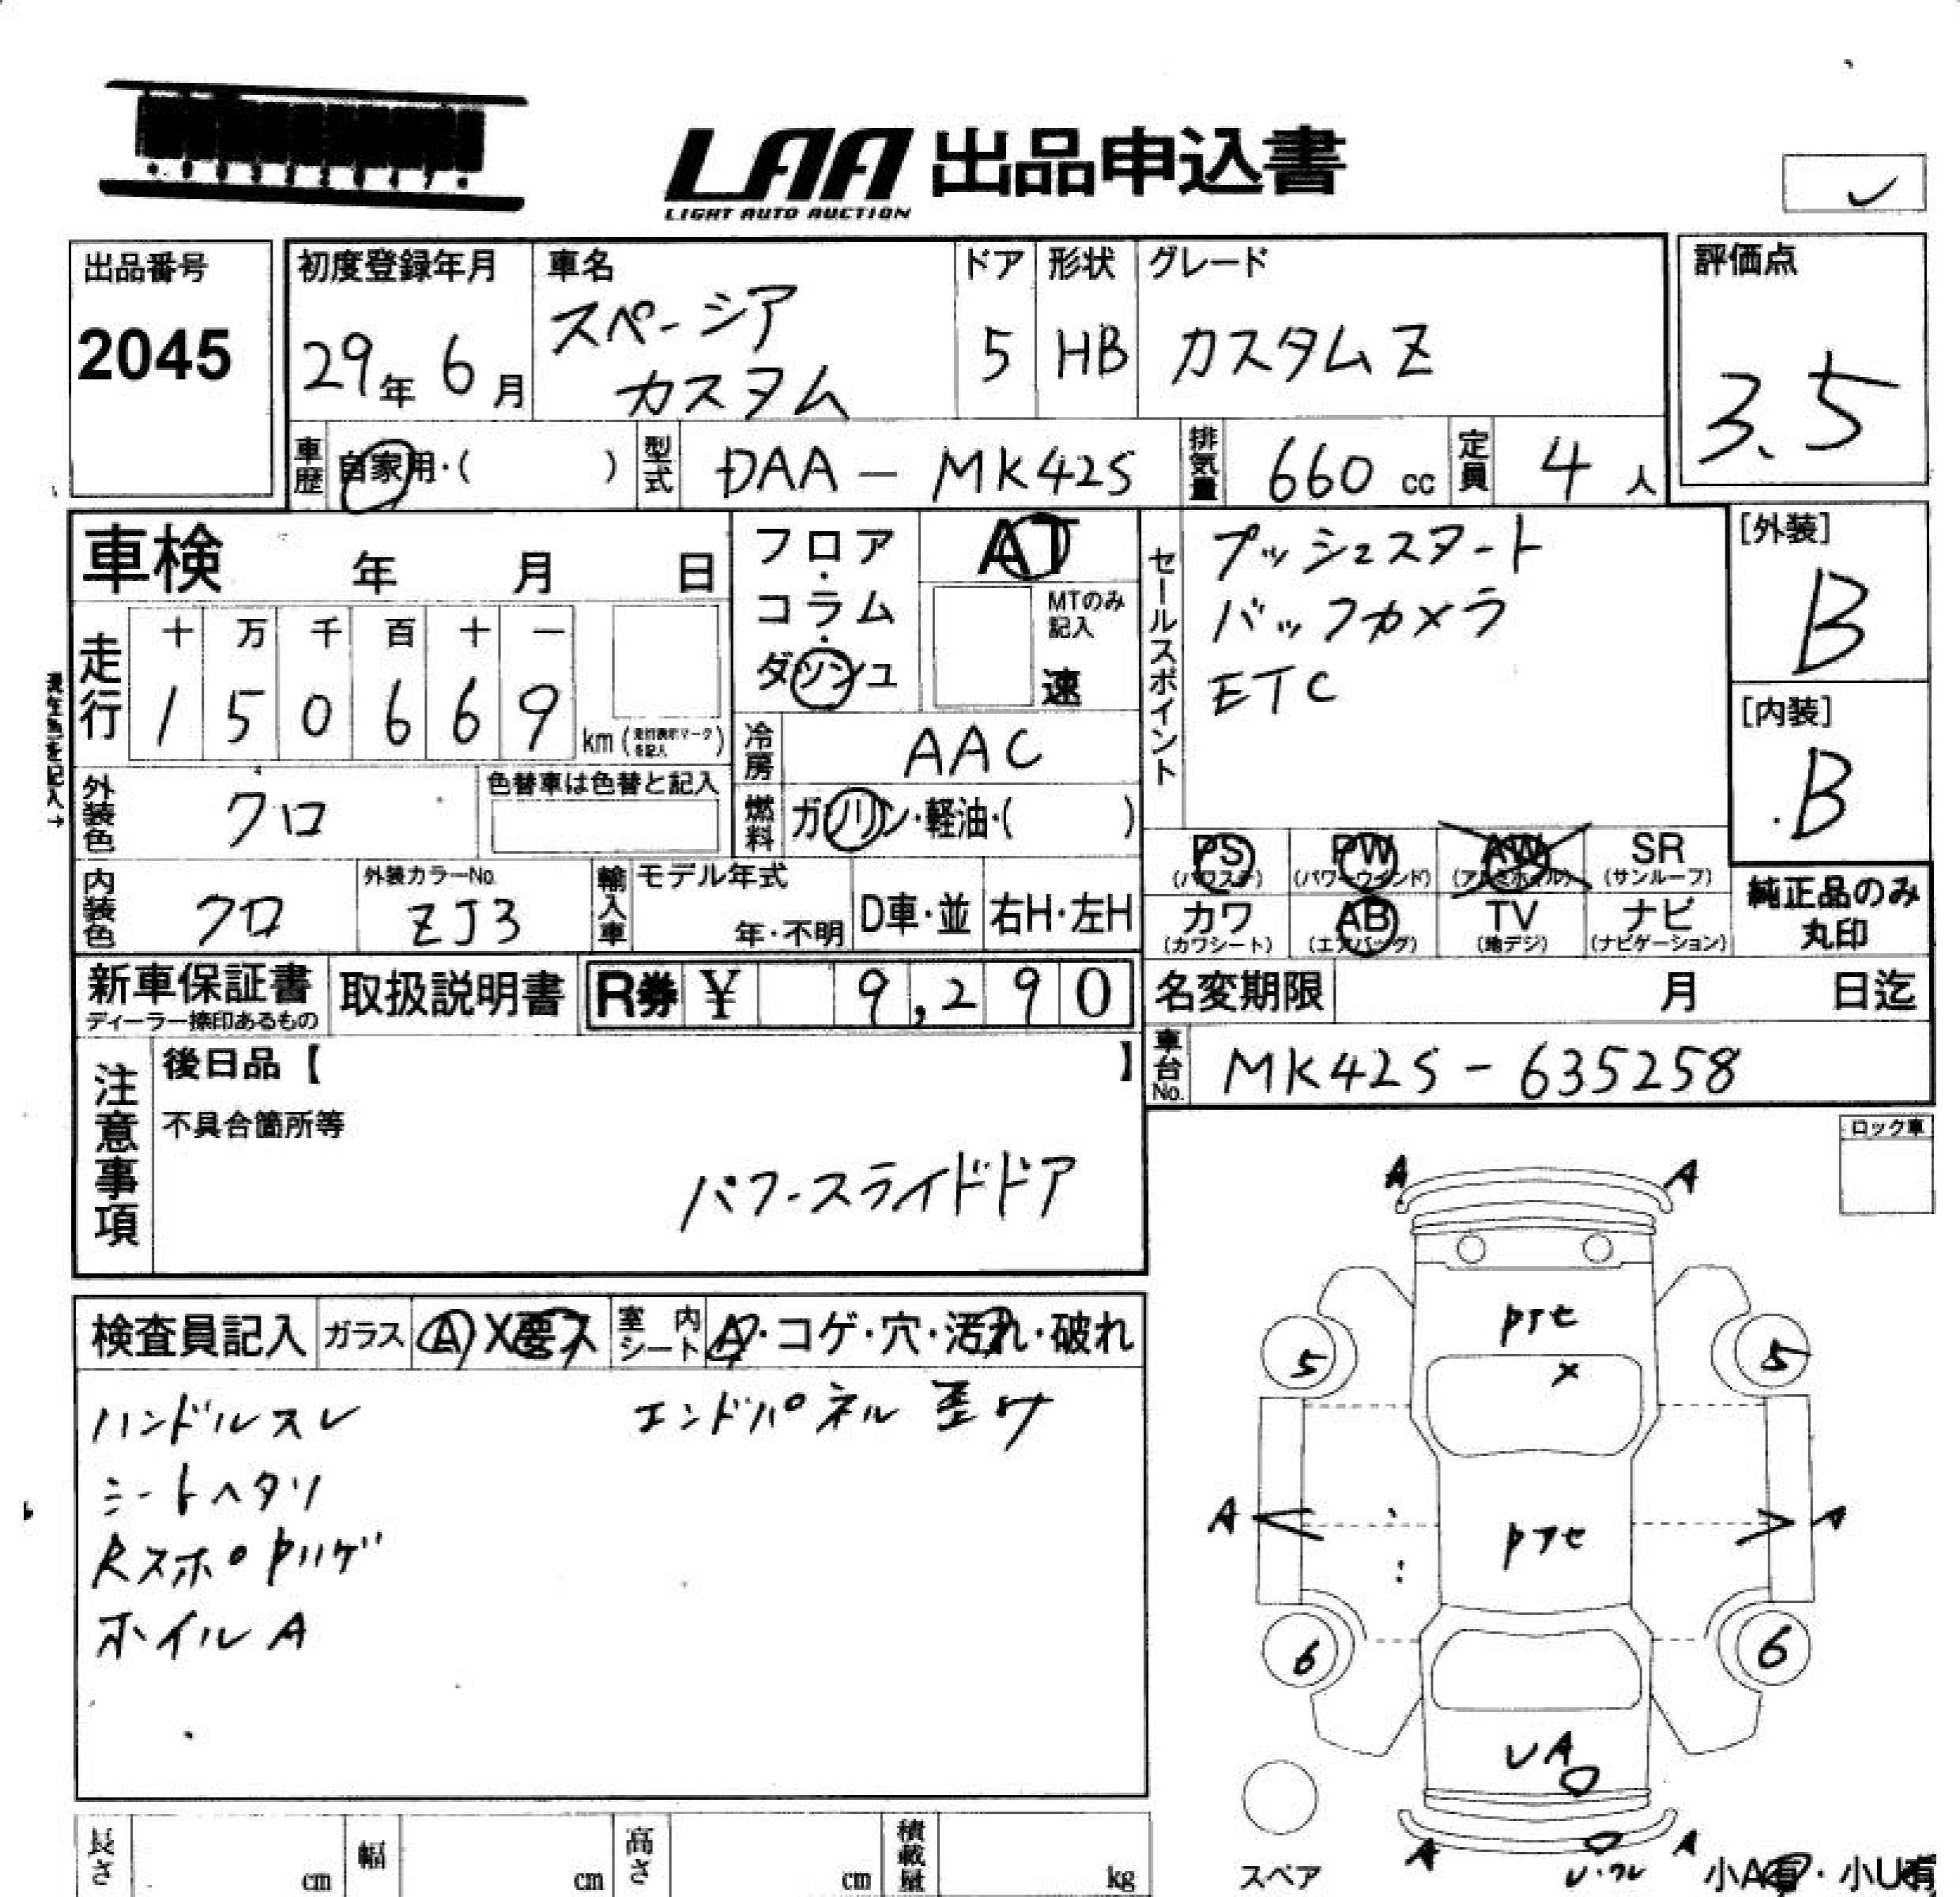 LAA 出品申込書
LIGHT AUTO AUCTION
出品番号
2045
初度登録年月
29年 6月
車名
スペーシア
カスタム
ドア
5
形状
HB
グレード
カスタムZ
評価点
3.5
車歴
自家用・( )
型式
DAA-MK42S
排気量
660 cc
定員
4 人
車検 年 月 日
走行
十 万 千 百 十 一
1 5 0 6 6 9
km
現在色を記入→
外装色
クロ
色替車は色替と記入
内装色
クロ
外装カラーNo.
ZJ3
輸入車
モデル年式
年・不明
D車・並
右H・左H
フロア・コラム・ダッシュ
AT
MTのみ記入
速
冷房
AAC
燃料
ガソリン・軽油・( )
セールスポイント
プッシュスタート
バックカメラ
ETC
[外装]
B
[内装]
B
PS
(パワステ)
PW
(パワーウインド)
AW
(アルミホイル)
SR
(サンルーフ)
カワ
(カワシート)
AB
(エアバッグ)
TV
(地デジ)
ナビ
(ナビゲーション)
純正品のみ
丸印
新車保証書
ディーラー捺印あるもの
取扱説明書
R券 ¥ 9,290
名変期限 月 日迄
車台No.
MK42S-635258
注意事項
後日品【 】
不具合箇所等
パワースライドドア
ロック車
検査員記入
ガラス
A X 要ス
室内シート
A・コゲ・穴・汚れ・破れ
ハンドルスレ
エンドパネル歪け
シートヘタリ
ホイルA
A A
5 5
X
A A
6 6
UA
A A
スペア
小A有・小U有
長さ cm
幅 cm
高さ cm
積載量 kg